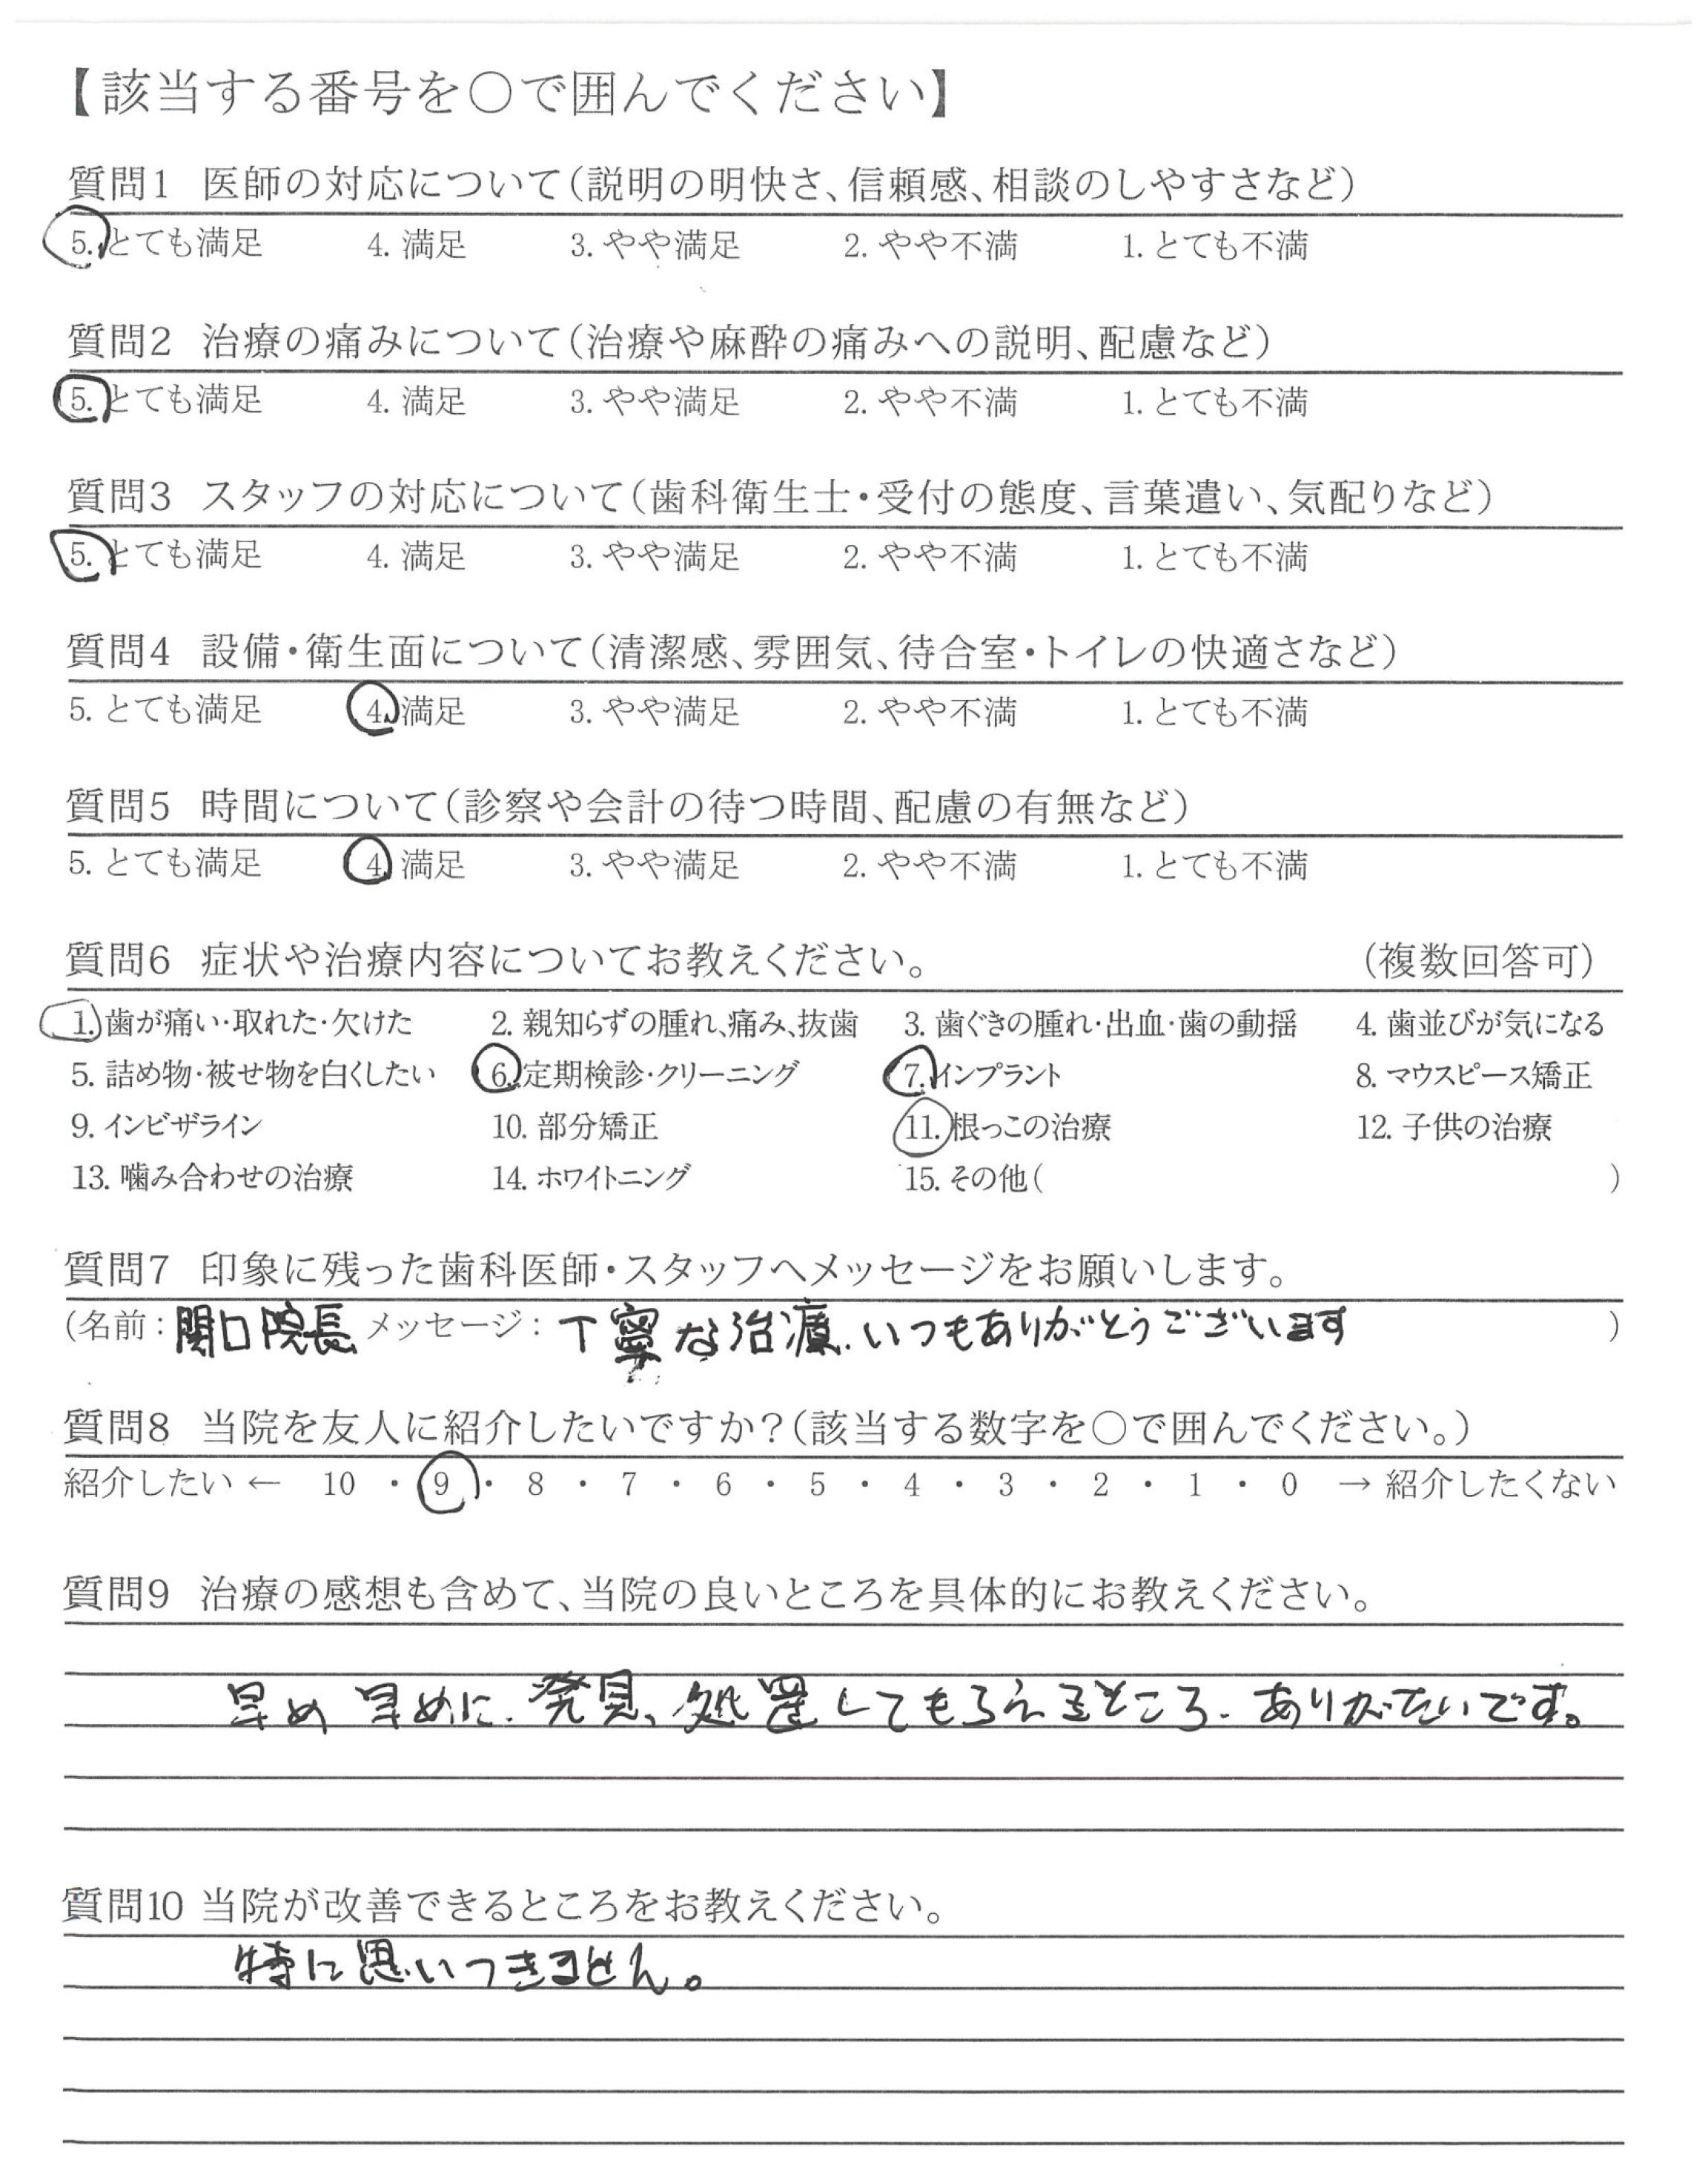 【該当する番号を〇で囲んでください】
質問1 医師の対応について(説明の明快さ、信頼感、相談のしやすさなど)
5. とても満足 4. 満足 3. やや満足 2. やや不満 1. とても不満
質問2 治療の痛みについて(治療や麻酔の痛みへの説明、配慮など)
5. とても満足 4. 満足 3. やや満足 2. やや不満 1. とても不満
質問3 スタッフの対応について(歯科衛生士・受付の態度、言葉遣い、気配りなど)
5. とても満足 4. 満足 3. やや満足 2. やや不満 1. とても不満
質問4 設備・衛生面について(清潔感、雰囲気、待合室・トイレの快適さなど)
5. とても満足 4. 満足 3. やや満足 2. やや不満 1. とても不満
質問5 時間について(診察や会計の待つ時間、配慮の有無など)
5. とても満足 4. 満足 3. やや満足 2. やや不満 1. とても不満
質問6 症状や治療内容についてお教えください。 (複数回答可)
1. 歯が痛い・取れた・欠けた 2. 親知らずの腫れ、痛み、抜歯 3. 歯ぐきの腫れ・出血・歯の動揺 4. 歯並びが気になる
5. 詰め物・被せ物を白くしたい 6. 定期検診・クリーニング 7. インプラント 8. マウスピース矯正
9. インビザライン 10. 部分矯正 11. 根っこの治療 12. 子供の治療
13. 噛み合わせの治療 14. ホワイトニング 15. その他( )
質問7 印象に残った歯科医師・スタッフへメッセージをお願いします。
(名前：関口院長 メッセージ：丁寧な治療、いつもありがとうございます )
質問8 当院を友人に紹介したいですか？(該当する数字を〇で囲んでください。)
紹介したい ← 10 ・ 9 ・ 8 ・ 7 ・ 6 ・ 5 ・ 4 ・ 3 ・ 2 ・ 1 ・ 0 → 紹介したくない
質問9 治療の感想も含めて、当院の良いところを具体的にお教えください。
早め早めに、発見、処置してもらえるところ、ありがたいです。
質問10 当院が改善できるところをお教えください。
特に思いつきません。